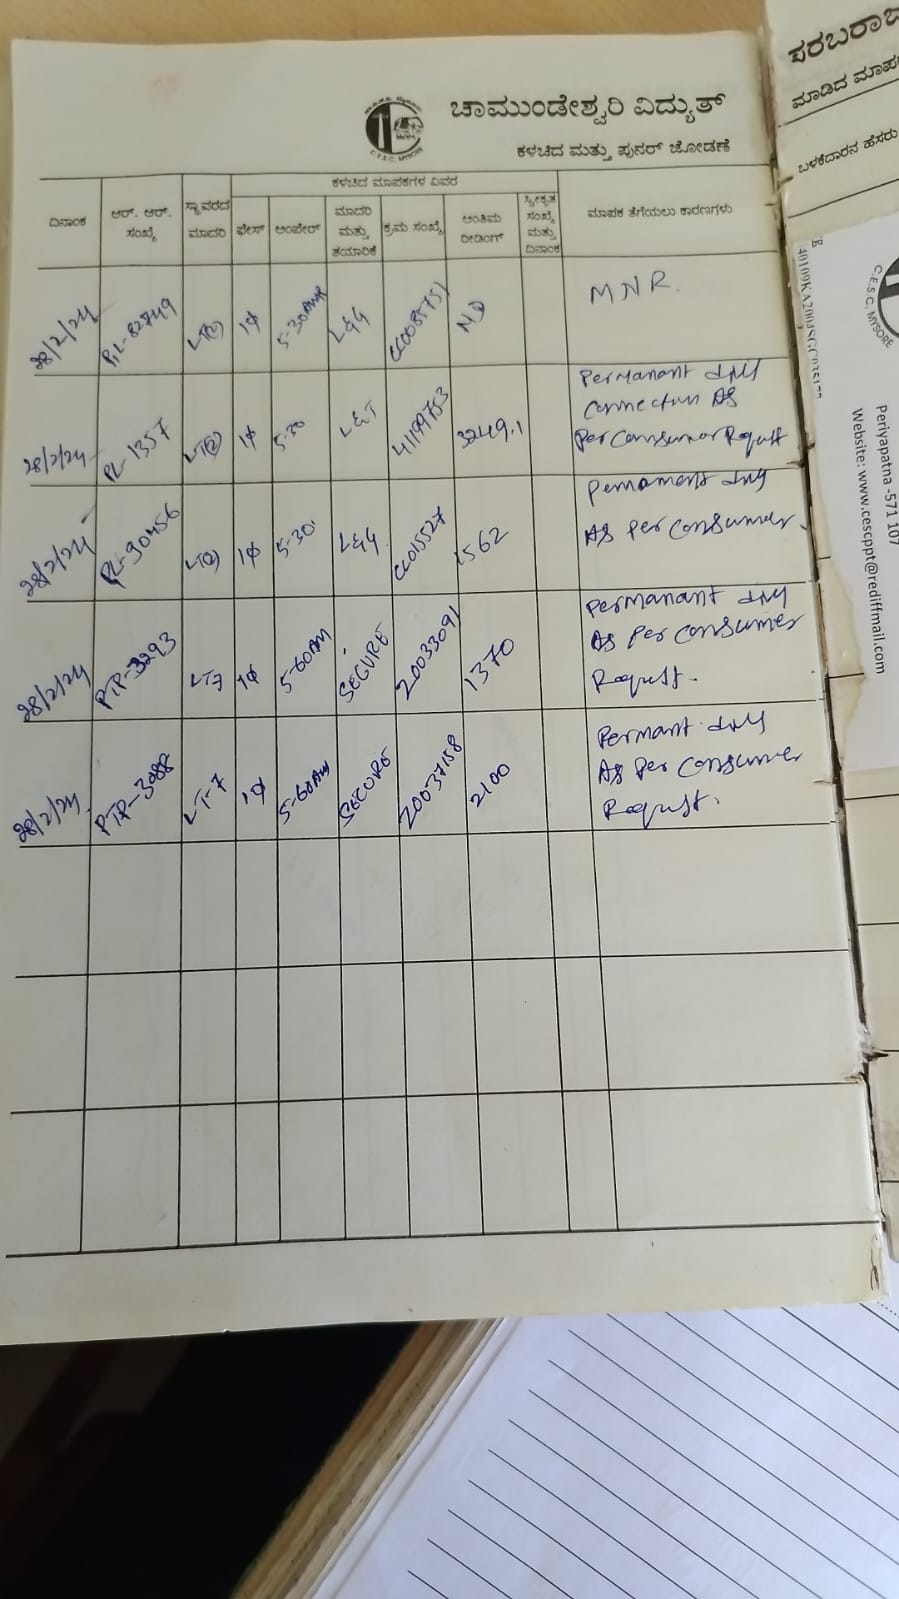 ಚಾಮುಂಡೇಶ್ವರಿ ವಿದ್ಯುತ್
C.E.S.C. MYSORE
ಕಳಚಿದ ಮತ್ತು ಪುನರ್ ಜೋಡಣೆ
ಕಳಚಿದ ಮಾಪಕಗಳ ವಿವರ
ದಿನಾಂಕ ಆರ್. ಆರ್. ಸಂಖ್ಯೆ ಸ್ಥಾವರದ ಮಾದರಿ ಫೇಸ್ ಅಂಪೇರ್ ಮಾದರಿ ಮತ್ತು ತಯಾರಿಕೆ ಕ್ರಮ ಸಂಖ್ಯೆ ಅಂತಿಮ ರೀಡಿಂಗ್ ಸ್ವೀಕೃತ ಸಂಖ್ಯೆ ಮತ್ತು ದಿನಾಂಕ ಮಾಪಕ ತೆಗೆಯಲು ಕಾರಣಗಳು
28/2/24 PL-82749 LT(2) 1φ 5-30AMP L&G CC0087751 ND MNR.
28/2/24 PL-1357 LT(2) 1φ 5-30 L&T 41199753 3249.1 Permanant
Connection As
Per Consumer Requst
28/2/24 PL-90456 LT(2) 1φ 5-30 L&G CC015527 1562 Permament
As Per Consumer.
28/2/24 PTP-3293 LT7 1φ 5-60AM SECURE 20033091 1370 Permanant
As Per Consumer
Requst.
28/2/24 PTP-3088 LT-7 1φ 5-60AM SECURE 20037158 2100 Permant
As Per Consumer
Requst.
ಪರಬರಾಜ
ಮಾಡಿದ ಮಾಪ
ಬಳಕೆದಾರನ ಹೆಸರು
C.E.S.C. MYSORE
Periyapatna -571 107
Website: www.cescppt@rediffmail.com